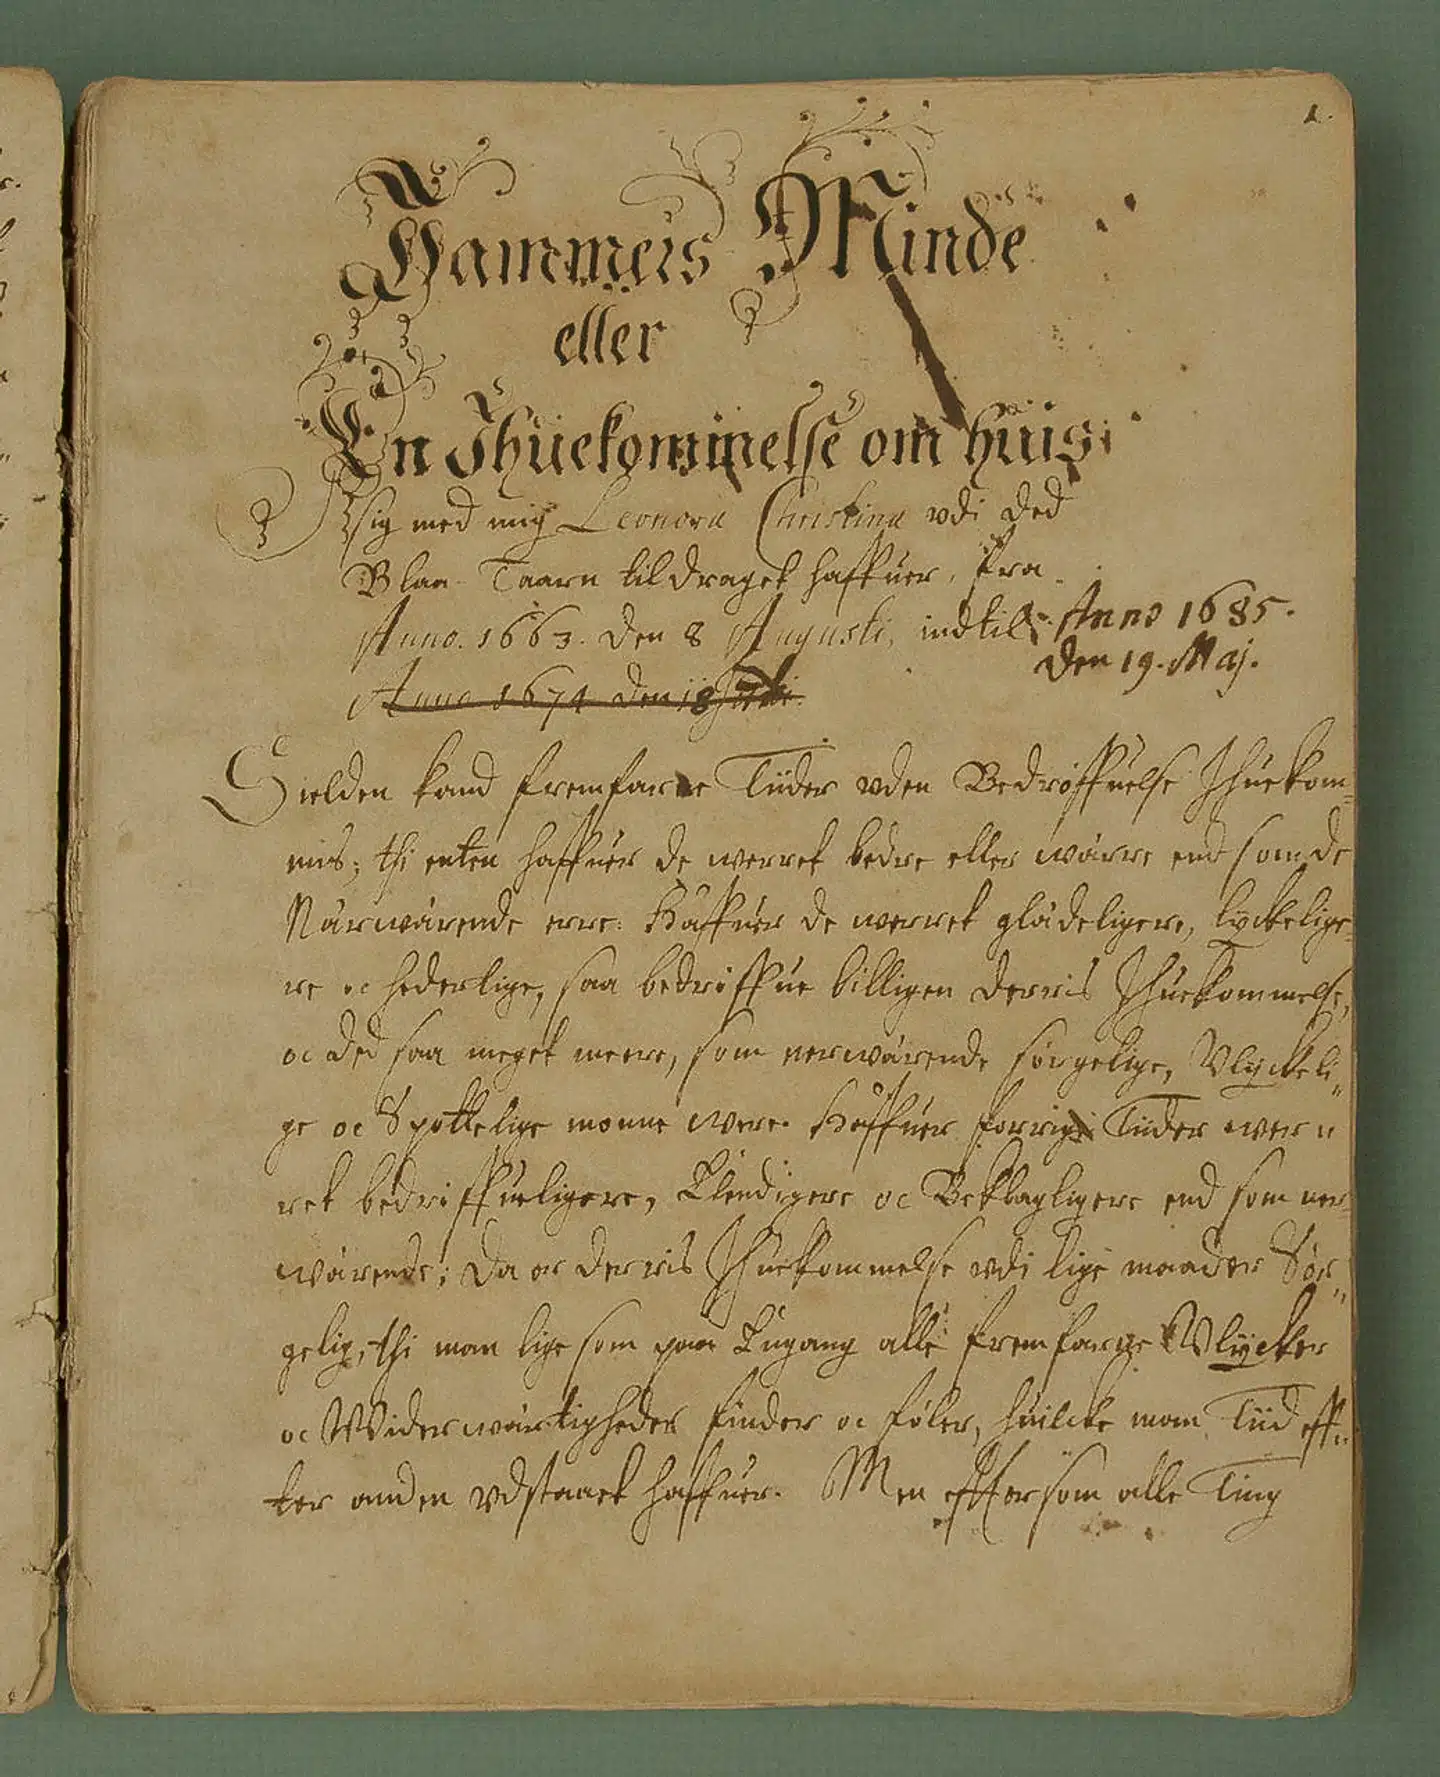 1.
Jammers Minde
eller
En Jhuekommelse om huis
sig med mig Leonora Christina vdi ded
Blaa Taarn tildraget haffuer, fra
Anno 1663. den 8 Augusti, indtil Anno 1685.
den 19. Maj.
Anno 1674 den 18
Sielden kand fremfarne Tiider vden Bedrøffuelse Jhuekom=
mis; thi enten haffuer de werret bedre eller wärre end som de
Närwärende erre: Haffuer de werret glädeligere, lyckelige=
re oc hederlige, saa bedrøffue billigen derris Jhuekommelse,
oc ded saa meget meere, som nerwärende sørgelige, Vlyckeli"
ge oc Spottelige monne were. Haffuer forrige Tiider wer"
ret bedrøffueligere, Elendigere oc Beklagligere end som ner=
wärende; da er derris Jhuekommelse vdi lige maader Sør"
gelig, thi man lige som paa Engang alle fremfarne Wlycker
oc Widerwärtigheder finder oc føler, huilcke man Tiid eff"
ter anden vdstaaet haffuer. Men effterson alle Ting